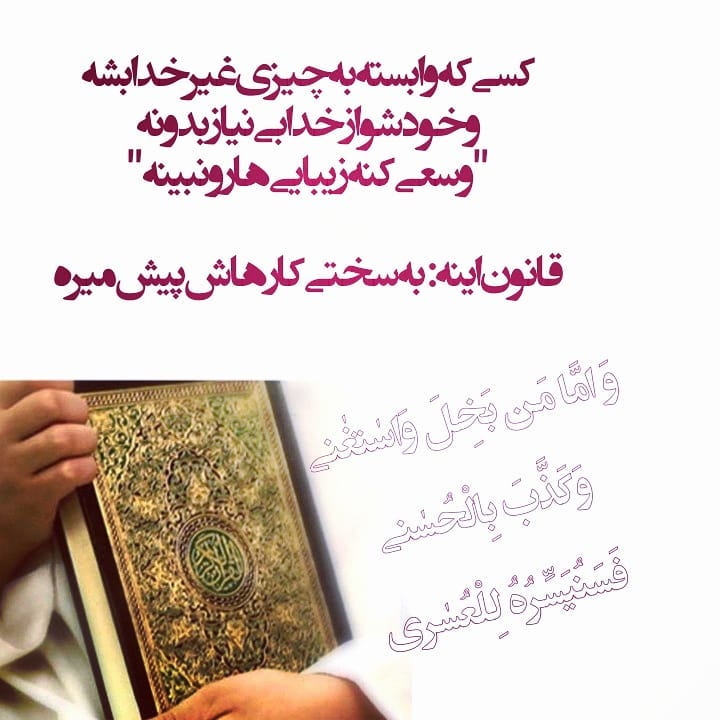 کسی که وابسته به چیزی غیر خدا بشه
و خودشو از خدا بی نیاز بدونه
"و سعی کنه زیبایی ها رو نبینه"
قانون اینه: به سختی کارهاش پیش میره
وَ امَّا مَن بَخِلَ وَاسْتَغْنی
وَ کَذَّبَ بِالْحُسْنی
فَسَنُیَسِّرُهُ لِلْعُسْری